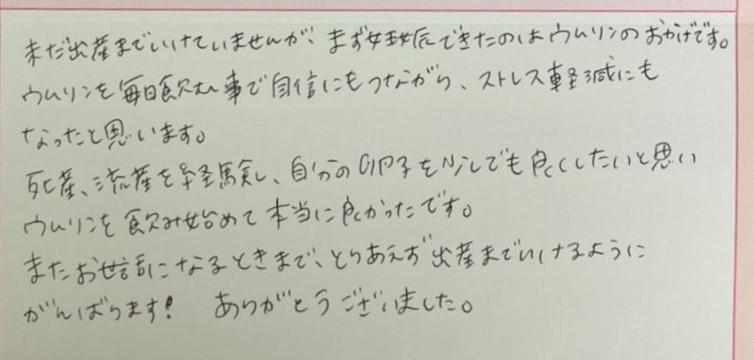 まだ出産までいけていませんが、まず妊娠できたのはウムリンのおかげです。
ウムリンを毎日飲む事で自信にもつながり、ストレス軽減にも
なったと思います。
死産、流産を経験し、自分の卵子を少しでも良くしたいと思い
ウムリンを飲み始めて本当に良かったです。
またお世話になるときまで、とりあえず出産までいけるように
がんばります! ありがとうございました。